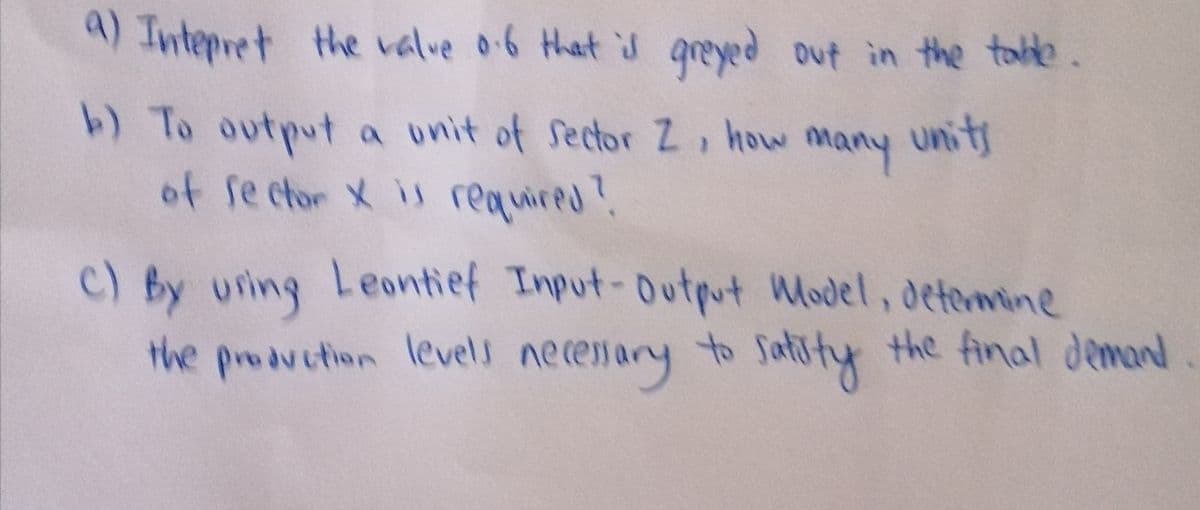 a) Intepret the value 0.6 that is greyed out in the table.
b) To output a unit of sector Z, how many units
of sector X is required?
c) By using Leontief Input-Output Model, determine
the production levels necessary to satisfy the final demand.